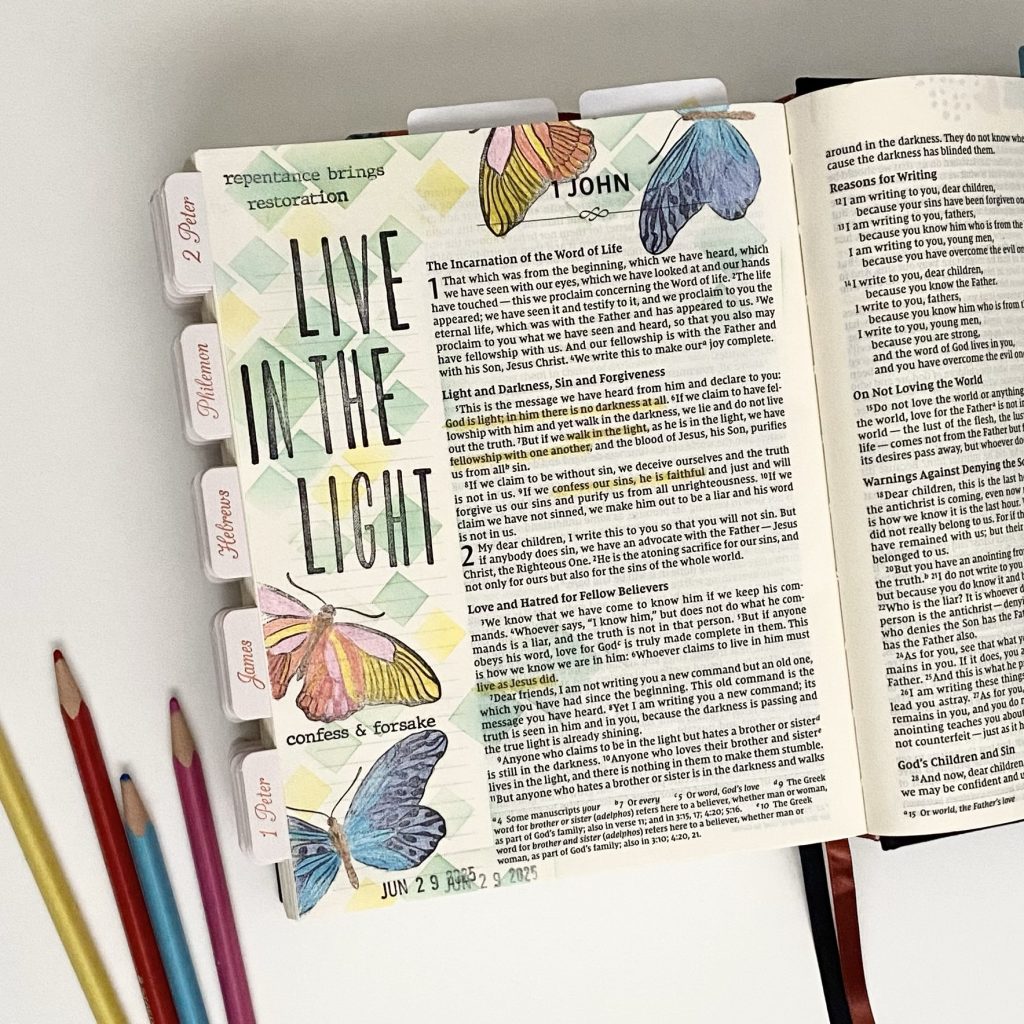 2 Peter
Philemon
Hebrews
James
1 Peter
repentance brings
restoration
LIVE
IN THE
LIGHT
confess & forsake
JUN 29 2025
JUN 29 2025
1 JOHN
The Incarnation of the Word of Life
1 That which was from the beginning, which we have heard, which
we have seen with our eyes, which we have looked at and our hands
have touched — this we proclaim concerning the Word of life. 2The life
appeared; we have seen it and testify to it, and we proclaim to you the
eternal life, which was with the Father and has appeared to us. 3We
proclaim to you what we have seen and heard, so that you also may
have fellowship with us. And our fellowship is with the Father and
with his Son, Jesus Christ. 4We write this to make oura joy complete.
Light and Darkness, Sin and Forgiveness
5This is the message we have heard from him and declare to you:
God is light; in him there is no darkness at all. 6If we claim to have fel-
lowship with him and yet walk in the darkness, we lie and do not live
out the truth. 7But if we walk in the light, as he is in the light, we have
fellowship with one another, and the blood of Jesus, his Son, purifies
us from allb sin.
8If we claim to be without sin, we deceive ourselves and the truth
is not in us. 9If we confess our sins, he is faithful and just and will
forgive us our sins and purify us from all unrighteousness. 10If we
claim we have not sinned, we make him out to be a liar and his word
is not in us.
2 My dear children, I write this to you so that you will not sin. But
if anybody does sin, we have an advocate with the Father — Jesus
Christ, the Righteous One. 2He is the atoning sacrifice for our sins, and
not only for ours but also for the sins of the whole world.
Love and Hatred for Fellow Believers
3We know that we have come to know him if we keep his com-
mands. 4Whoever says, “I know him,” but does not do what he com-
mands is a liar, and the truth is not in that person. 5But if anyone
obeys his word, love for Godc is truly made complete in them. This
is how we know we are in him: 6Whoever claims to live in him must
live as Jesus did.
7Dear friends, I am not writing you a new command but an old one,
which you have had since the beginning. This old command is the
message you have heard. 8Yet I am writing you a new command; its
truth is seen in him and in you, because the darkness is passing and
the true light is already shining.
9Anyone who claims to be in the light but hates a brother or sisterd
is still in the darkness. 10Anyone who loves their brother and sistere
lives in the light, and there is nothing in them to make them stumble.
11But anyone who hates a brother or sister is in the darkness and walks
a4 Some manuscripts your b7 Or every c5 Or word, God's love d9 The Greek
word for brother or sister (adelphos) refers here to a believer, whether man or woman,
as part of God's family; also in verse 11; and in 3:15, 17; 4:20; 5:16. e10 The Greek
word for brother and sister (adelphos) refers here to a believer, whether man or
woman, as part of God's family; also in 3:10; 4:20, 21.
around in the darkness. They do not know
cause the darkness has blinded them.
Reasons for Writing
12I am writing to you, dear children,
because your sins have been forgiven on
13I am writing to you, fathers,
because you know him who is from the
I am writing to you, young men,
because you have overcome the evil
14I write to you, dear children,
because you know the Father.
I write to you, fathers,
because you know him who is from
I write to you, young men,
because you are strong,
and the word of God lives in you,
and you have overcome the evil
On Not Loving the World
15Do not love the world or anything
the world, love for the Fathera is not in
world — the lust of the flesh, the
life — comes not from the Father but
its desires pass away, but whoever
Warnings Against Denying the
18Dear children, this is the last
the antichrist is coming, even now
is how we know it is the last hour.
did not really belong to us. For if
have remained with us; but their
belonged to us.
20But you have an anointing
the truth.b 21I do not write to you
because you do know it and
22Who is the liar? It is whoever
person is the antichrist — denying
who denies the Son has the
has the Father also.
24As for you, see that what
mains in you. If it does, you
Father. 25And this is what he
26I am writing these things
lead you astray. 27As for you,
remains in you, and you do
anointing teaches you about
not counterfeit — just as it
God's Children and Sin
28And now, dear children,
we may be confident and
a15 Or world, the Father's love